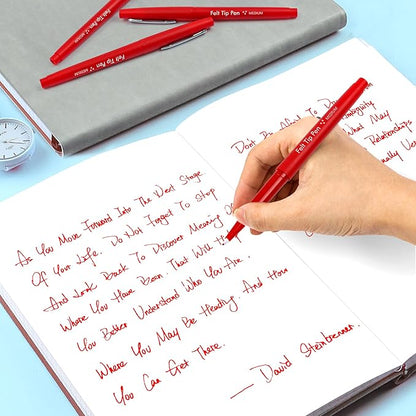 Felt Tip Pen MEDIUM
Felt Tip Pen MEDIUM
Felt Tip Pen MEDIUM
As You Move Forward Into The Next Stage
Of Your Life. Do Not Forget To Stop
And Look Back To Discover Meaning Of
Where You Have Been. That Will
You Better Understand Who You Are.
Where You May Be Heading. And How
You Can Get There.
— David Steinbrenner.
Don't Be Afraid To
Ambiguity
What May
Relationships